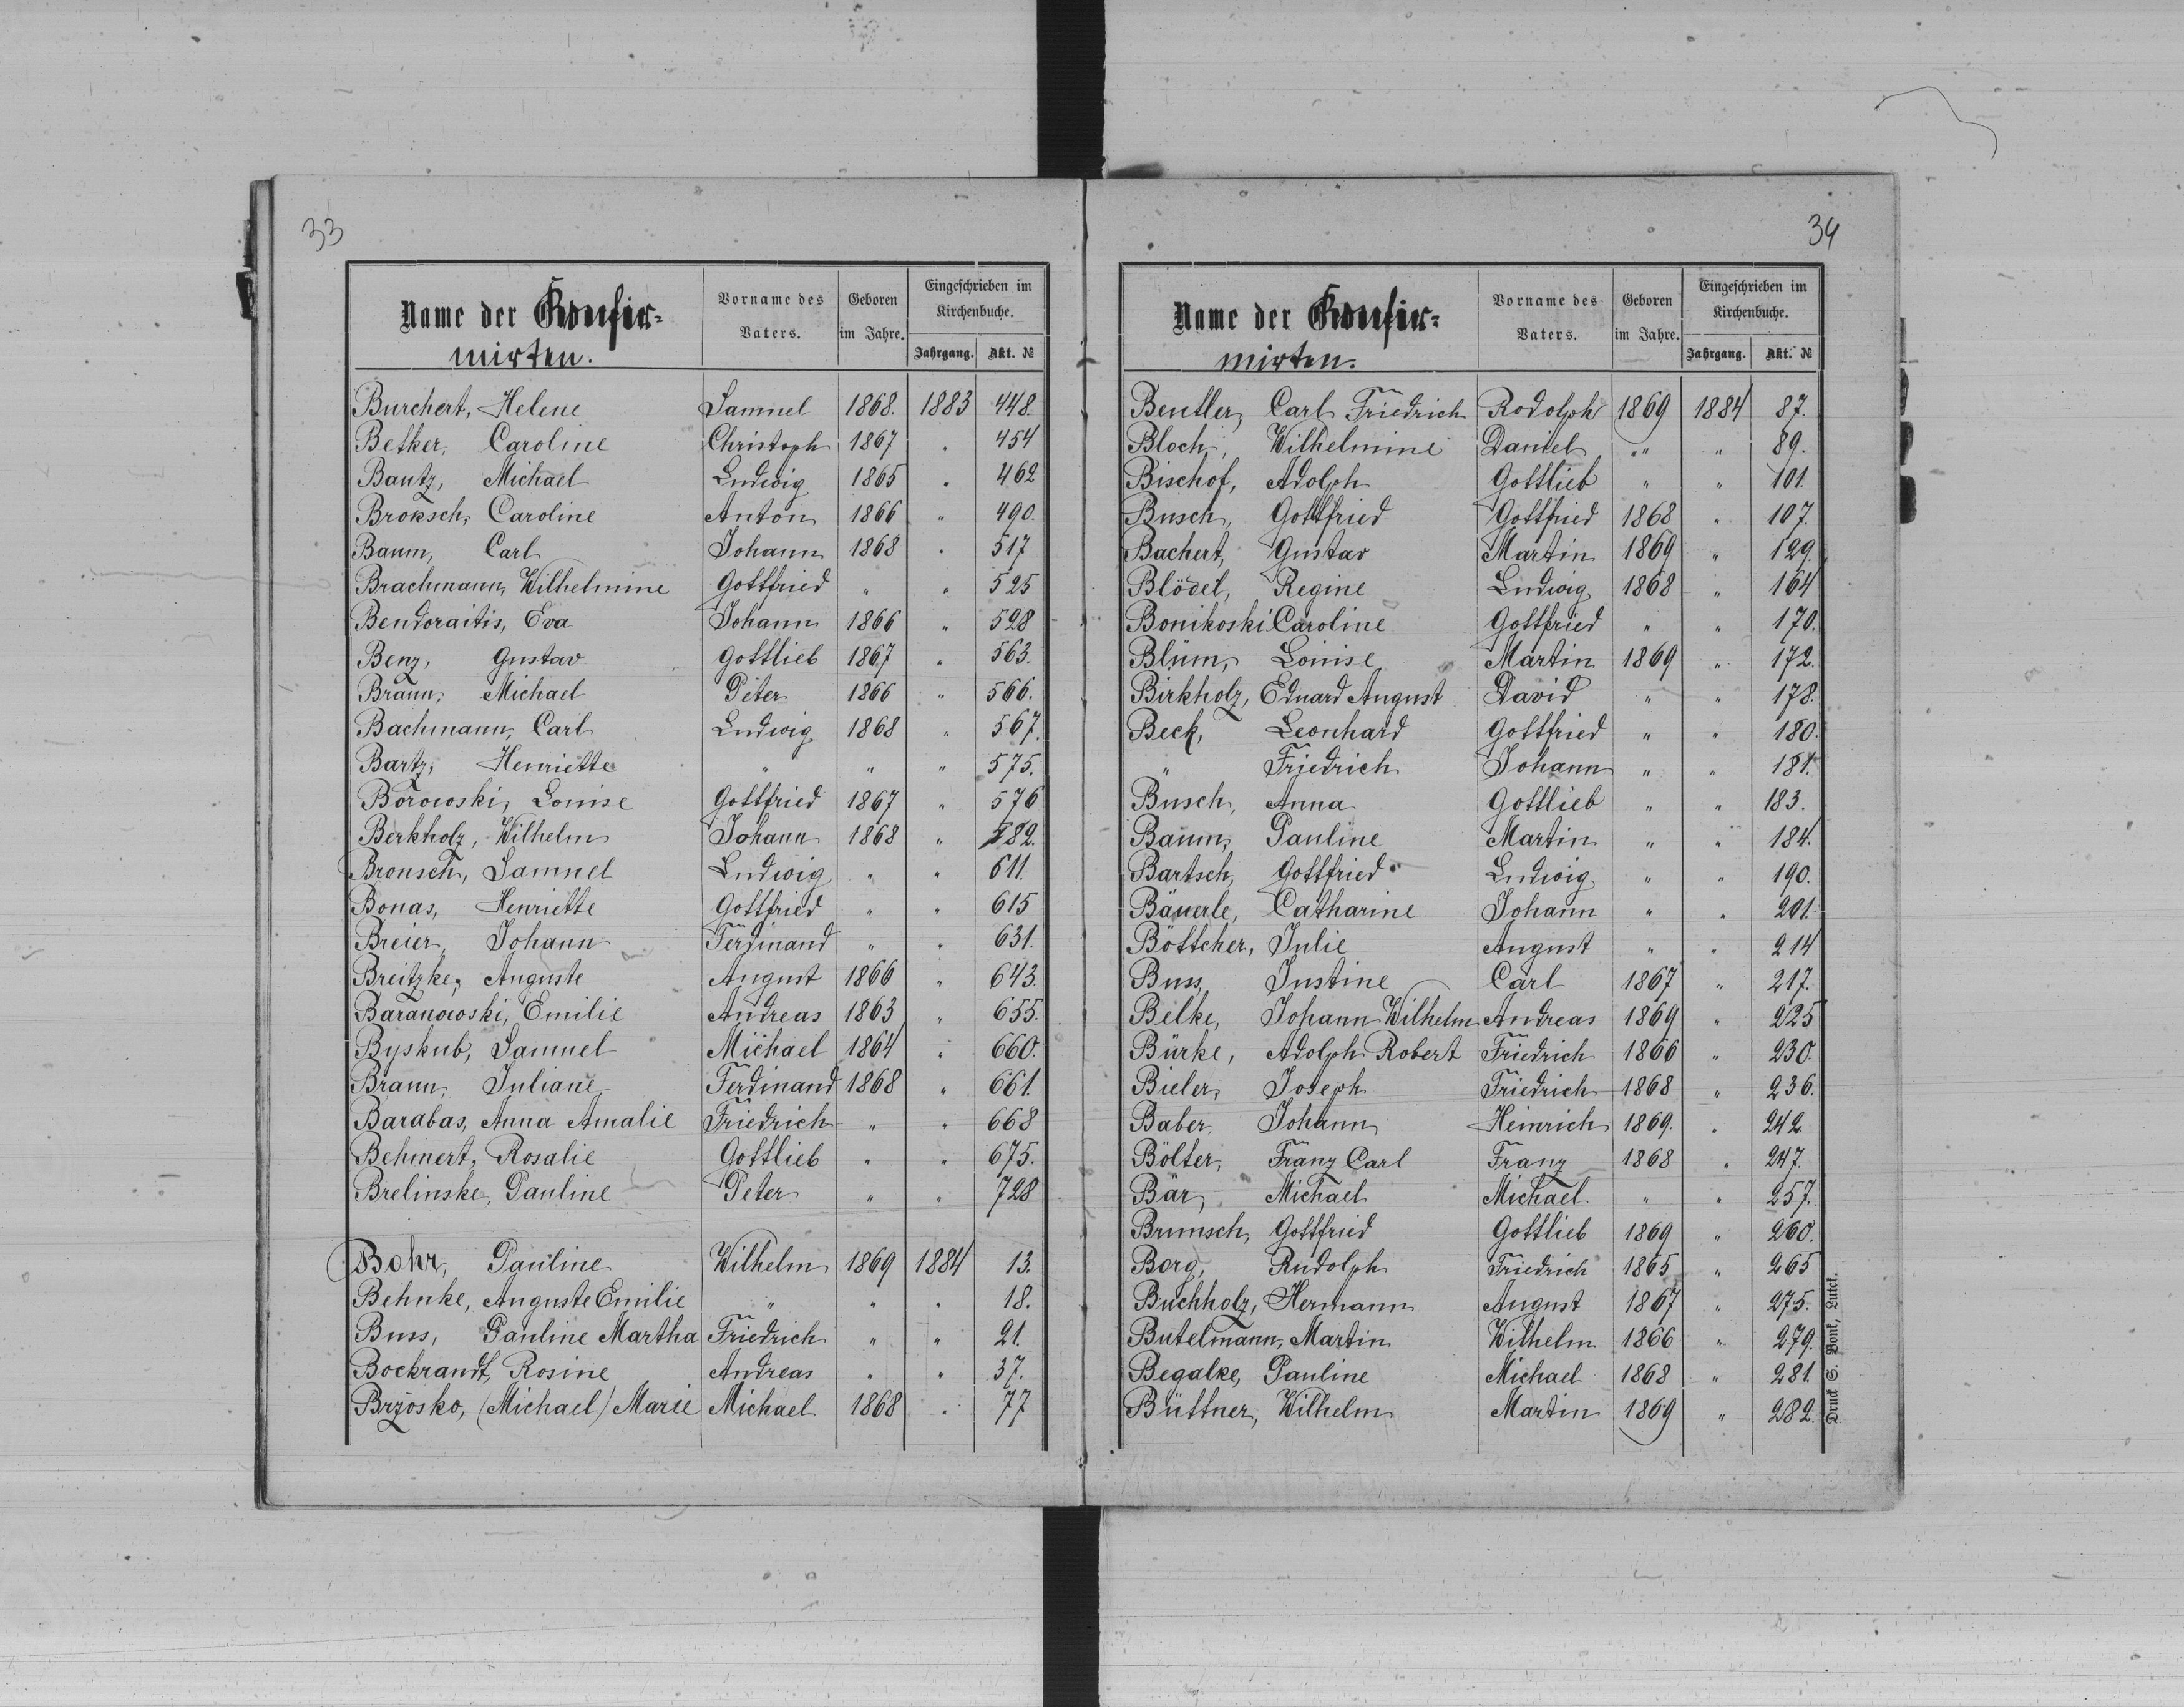 33
Name der Konfir=
mirten.
Vorname des Vaters.
Geboren im Jahre.
Eingeschrieben im Kirchenbuche.
Jahrgang. Akt. №
Burchert, Helene Samuel 1868. 1883 448.
Betker, Caroline Christoph 1867 " 454
Bautz, Michael Ludwig 1865 " 462
Broksch, Caroline Anton 1866 " 490.
Baum, Carl Johann 1868 " 517
Brachmann, Wilhelmine Gottfried " " 525
Bendoraitis, Eva Johann 1866 " 528
Benz, Gustav Gottlieb 1867 " 563.
Braun, Michael Peter 1866 " 566.
Bachmann, Carl Ludwig 1868 " 567.
Bartz, Henriette " " " 575.
Borowski, Louise Gottfried 1867 " 576
Berkholz, Wilhelm Johann 1868 " 582.
Bronsch, Samuel Ludwig " " 611.
Bonas, Henriette Gottfried " " 615
Breier, Johann Ferdinand " " 631.
Breitzke, Auguste August 1866 " 643.
Baranowski, Emilie Andreas 1863 " 655.
Byskub, Samuel Michael 1864 " 660.
Braun, Juliane Ferdinand 1868 " 661.
Barabas, Anna Amalie Friedrich " " 668
Behmert, Rosalie Gottlieb " " 675.
Brelinske, Pauline Peter " " 728
Bohr, Pauline Wilhelm 1869 1884 13.
Behnke, Auguste Emilie " " " 18.
Buss, Pauline Martha Friedrich " " 21.
Bockrandt, Rosine Andreas " " 37.
Brzosko, (Michael) Marie Michael 1868 " 77
34
Name der Konfir=
mirten.
Vorname des Vaters.
Geboren im Jahre.
Eingeschrieben im Kirchenbuche.
Jahrgang. Akt. №
Beutler, Carl Friedrich Rodolph 1869 1884 87.
Bloch, Wilhelmine Daniel " " 89.
Bischof, Adolph Gottlieb " " 101.
Busch, Gottfried Gottfried 1868 " 107.
Bachert, Gustav Martin 1869 " 129.
Blödel, Regine Ludwig 1868 " 164
Bonikoski Caroline Gottfried " " 170.
Blum, Louise Martin 1869 " 172.
Birkholz, Eduard August David " " 178.
Beck, Leonhard Gottfried " " 180.
" Friedrich Johann " " 181.
Busch, Anna Gottlieb " " 183.
Baum, Pauline Martin " " 184.
Bartsch, Gottfried Ludwig " " 190.
Bäuerle, Catharine Johann " " 201.
Böttcher, Julie August " " 214
Buss, Justine Carl 1867 " 217.
Belke, Johann Wilhelm Andreas 1869 " 225
Bürke, Adolph Robert Friedrich 1866 " 230.
Bieler, Joseph Friedrich 1868 " 236.
Baber, Johann Heinrich 1869. " 242.
Bölter, Franz Carl Franz 1868 " 247.
Bär, Michael Michael " " 257.
Brunsch, Gottfried Gottlieb 1869 " 260.
Borg, Rudolph Friedrich 1865 " 265
Buchholz, Hermann August 1867 " 275.
Butelmann, Martin Wilhelm 1866 " 279.
Begalke, Pauline Michael 1868 " 281.
Büttner, Wilhelm Martin 1869 " 282.
Druck S. Bonk, Lutck.